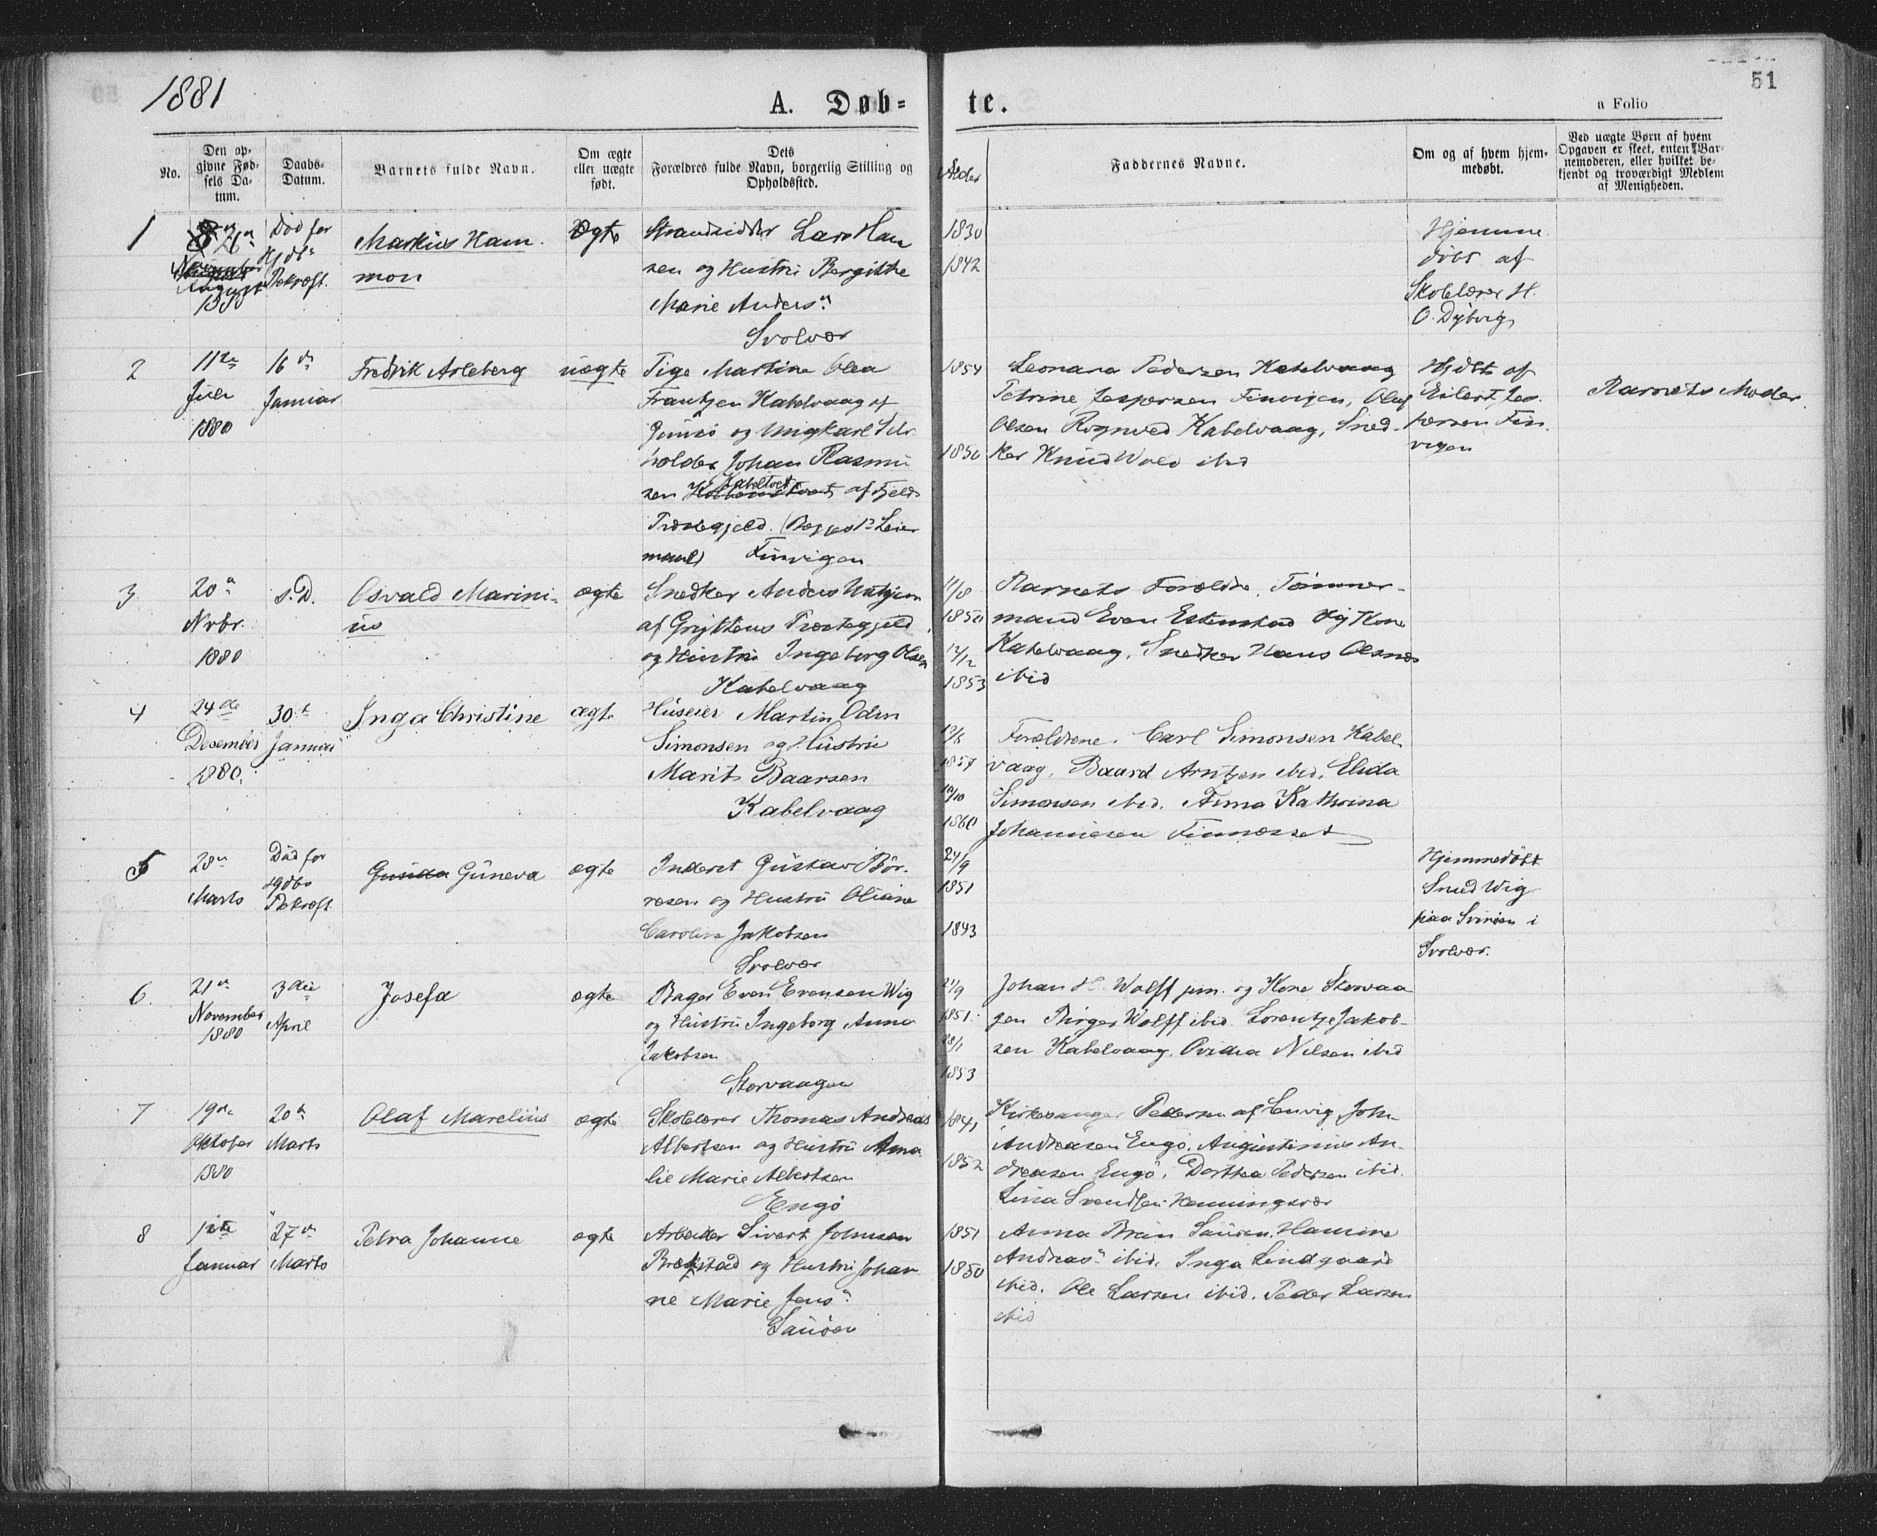 1881
A. Døb-
te.
51
a Folio
No.
Den op-
givne Fød-
sels Da-
tum.
Daabs-
Datum.
Barnets fulde Navn.
Om ægte
eller uægte
født.
Dets
Forældres fulde Navn, borgerlig Stilling og
Opholdssted.
Alder
Faddernes Navne.
Om og af hvem hjem-
medøbt.
Ved uægte Børn af hvem
Opgaven er skeet, enten Bar-
nemoderen, eller hvilket be-
kjendt og troværdigt Medlem
af Menigheden.
1
August
1880
Død før
Bekræft.
Markus Ham
mon
Ægte
Strandsidder Lars Han
sen og Hustru Bergitthe
Marie Anders
Svolvær
1830
1842
Hjemme
døbt af
Skolelærer H.
O. Dyberg
2
11te
Juli
1880
16de
Januar
Fredrik Arleberg
uægte
Pige Martine Olea
Frantzen Kabelvaag af
og Ungkarl Selv
holder Johan Rasmu
sen Kabeltvet af Fjeld
Præstegjeld. (Begges 1ste Leier
maal) Finvigen
1854
1850
Leonara Pedersen Kabelvaag
Petrine Jespersen Finvigen, Oluf
Olsen Rognved Kabelvaag, Sned-
ker Knud Wold ibid
Hjdbt af
Eilert Jes-
persen Fin
vigen
Barnets Moder.
3
20de
Nvbr.
1880
s. D.
Osvald Marini-
us
ægte
Snedker Anders
af Gryttens Præstegjeld
og Hustru Ingeborg Olsen
Kabelvaag
11/8
1850
12/12
1853
Barnets Forældre, Tømmer-
mand Even Estenstad og Kone
Kabelvaag, Snedker Hans Olsnes
ibid
4
24de
Desember
1880.
30te
Januar
Inga Christine
ægte
Huseier Martin Odin
Simonsen og Hustru
Marit Baarsen
Kabelvaag
1857
10/10
1860
Forældrene. Carl Simonsen Kabel-
vaag, Baard Arntzen ibid, Elida
Simonsen ibid. Anna Kathrina
Johannesen Finnæsset
5
28de
Marts
Død før
Hjdbs
Bekræft.
Guneva
ægte
Inderst Gustav Bør-
resen og Hustru Oliane
Caroline Jakobsen
Svolvær
24/9
1851
1843
Hjemmedøbt
Wig
paa Svinøen i
Svolvær.
6
21de
November
1880
3die
April
Josefa
ægte
Bager Even Evensen Wig
og Hustru Ingeborg Anna
Jakobsen
Storvaagen
1851.
28/1
1853
Johan H. Wolff jun. og Kone Storvaa
gen Birger Wolff ibid Lorentze Jakob-
sen Kabelvaag, Ovidia Nilsen ibid
7
19de
Oktober
1880
20de
Marts
Olaf Marelius
ægte
Skolelærer Thomas Andreas
Albertsen og Hustru Ama
lie Marie Albertsen
Engø
1841
1852
Kirkesanger Pedersen af Lenvig, John
Andreasen Engø, Augustinus An-
dreasen Engø, Dorthea Pedersen ibid.
Lina Svendsen Henningsvær
8
1ste
Januar
27de
Marts
Petra Johanne
ægte
Arbeider Sivert Johnsen
Brækstad og Hustru Johan
ne Marie Jens
Sauøen
1851
1850
Anna Brun Sauøen, Hanna
Andreas ibid, Inga Lindgaard
ibid. Ole Larsen ibid. Peder Larsen
ibid